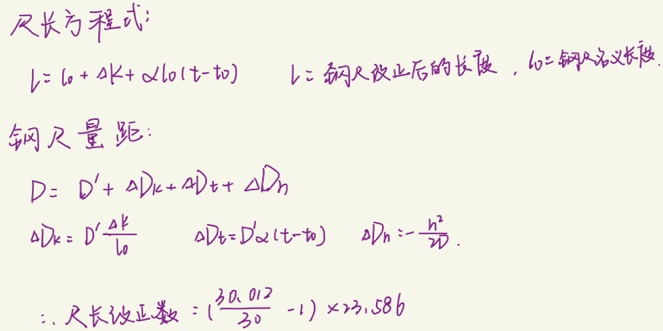 尺长方程式:
l = l₀ + Δk + αl₀(t-t₀)   l = 钢尺改正后的长度, l₀=钢尺名义长度.
钢尺量距:
D = D' + ΔDk + ΔDt + ΔDh
ΔDk = D' Δk/l₀   ΔDt = D'α(t-t₀)   ΔDh = -h²/2D.
∴ 尺长改正数 = (30.012/30 -1) × 23.586